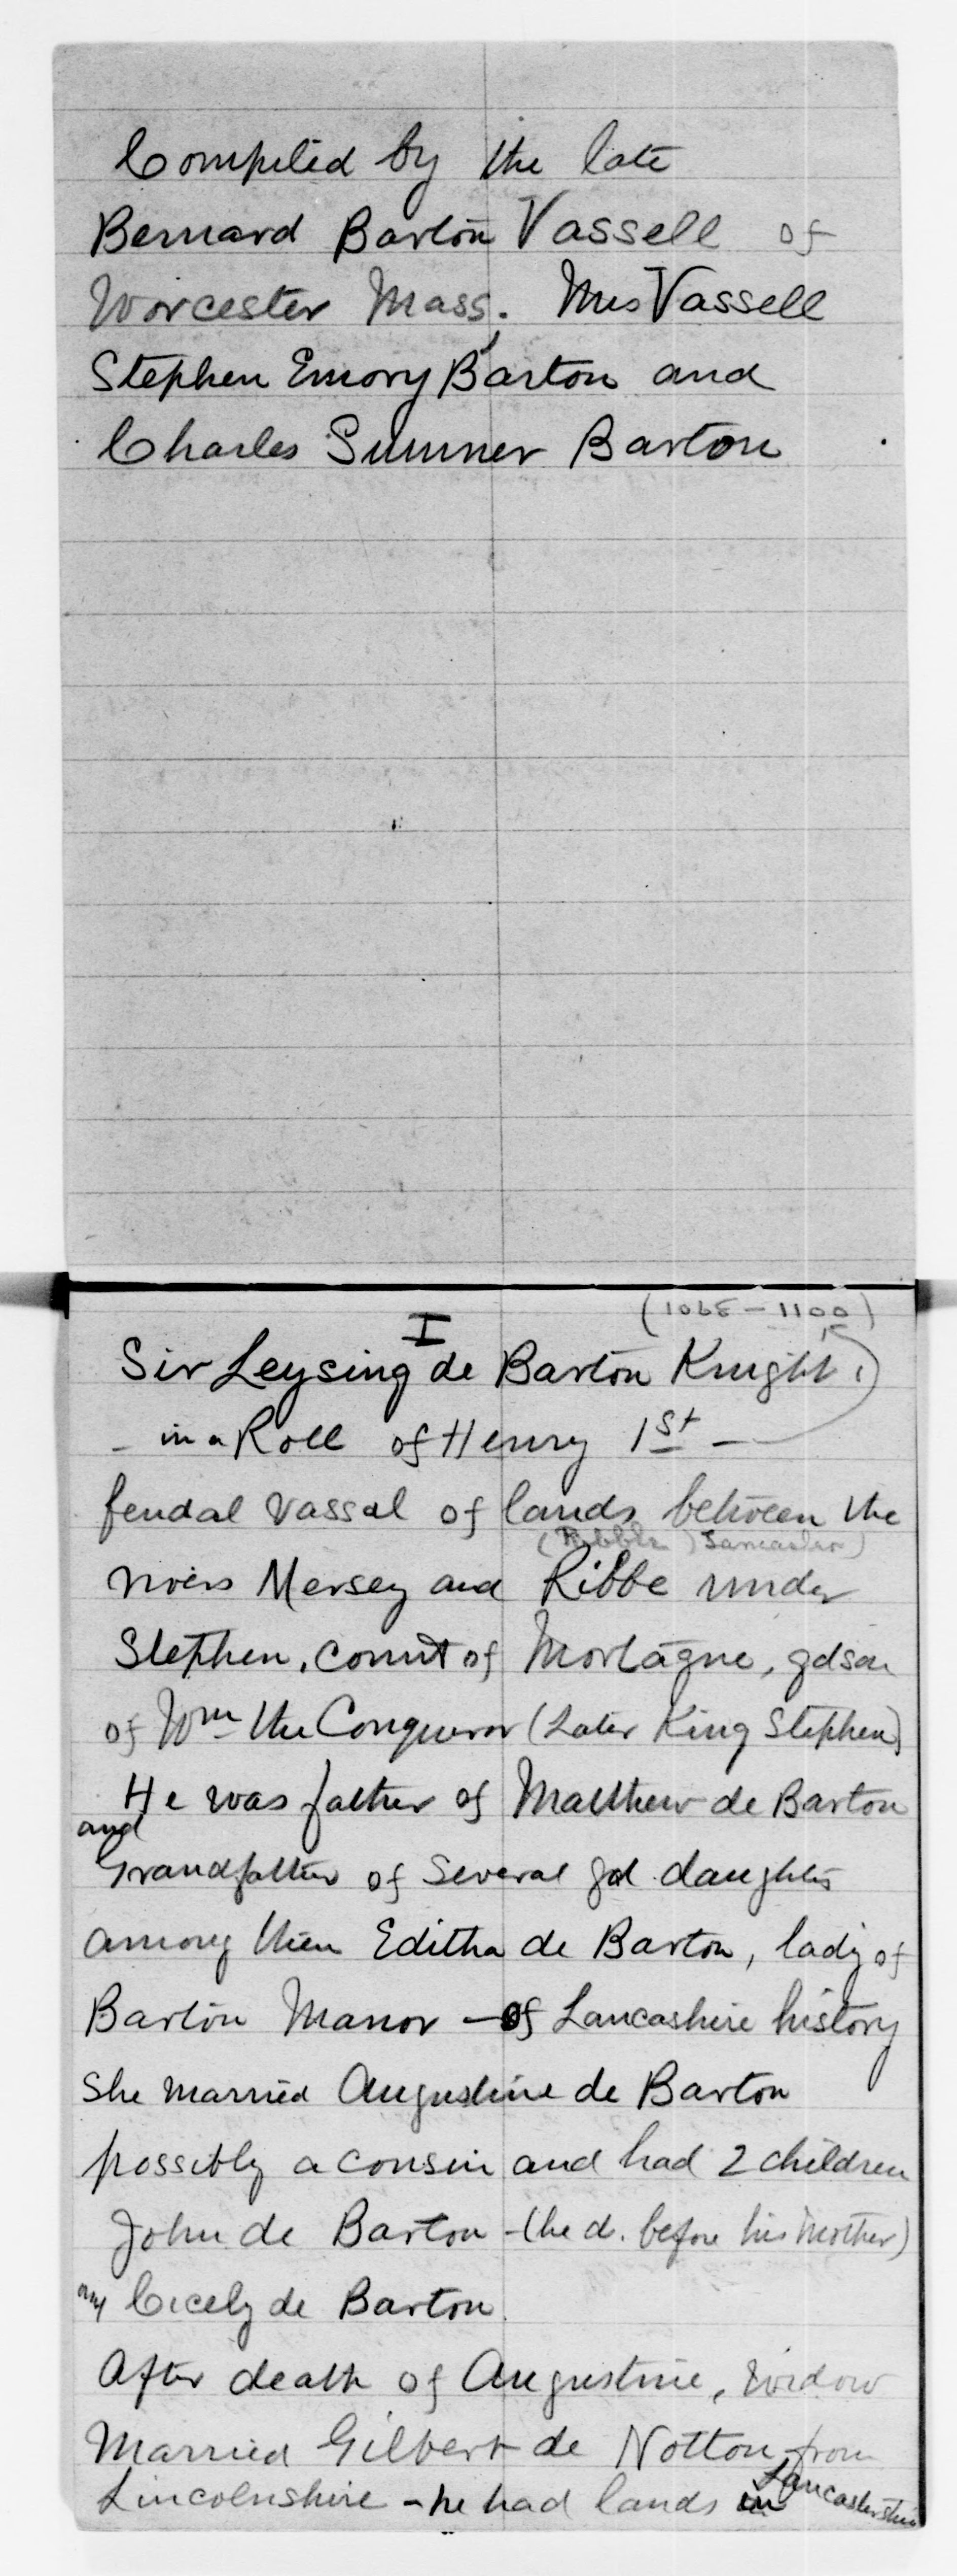 Compiled by the late
Bernard Barton Vassell of
Worcester Mass, Mrs Vassell
Stephen Emory Barton and
Charles Sumner Barton
(1068 - 1100)
I
Sir Leysing de Barton Knight
- in a Roll of Henry 1st -
feudal vassal of lands between the
(Ribble) Lancaster)
rivers Mersey and Ribbe under
Stephen, count of Mortagne, gdson
of Wm the Conqueror (Later King Stephen)
He was father of Matthew de Barton
and
Grandfather of Several gd daughters
among them Editha de Barton, lady of
Barton Manor - of Lancashire history
She married Augustine de Barton
possibly a cousin and had 2 children
John de Barton - (he d. before his mother)
Cicely de Barton
After death of Augustine, widow
Married Gilbert de Notton from
Lincolnshire - he had lands in Lancastershire